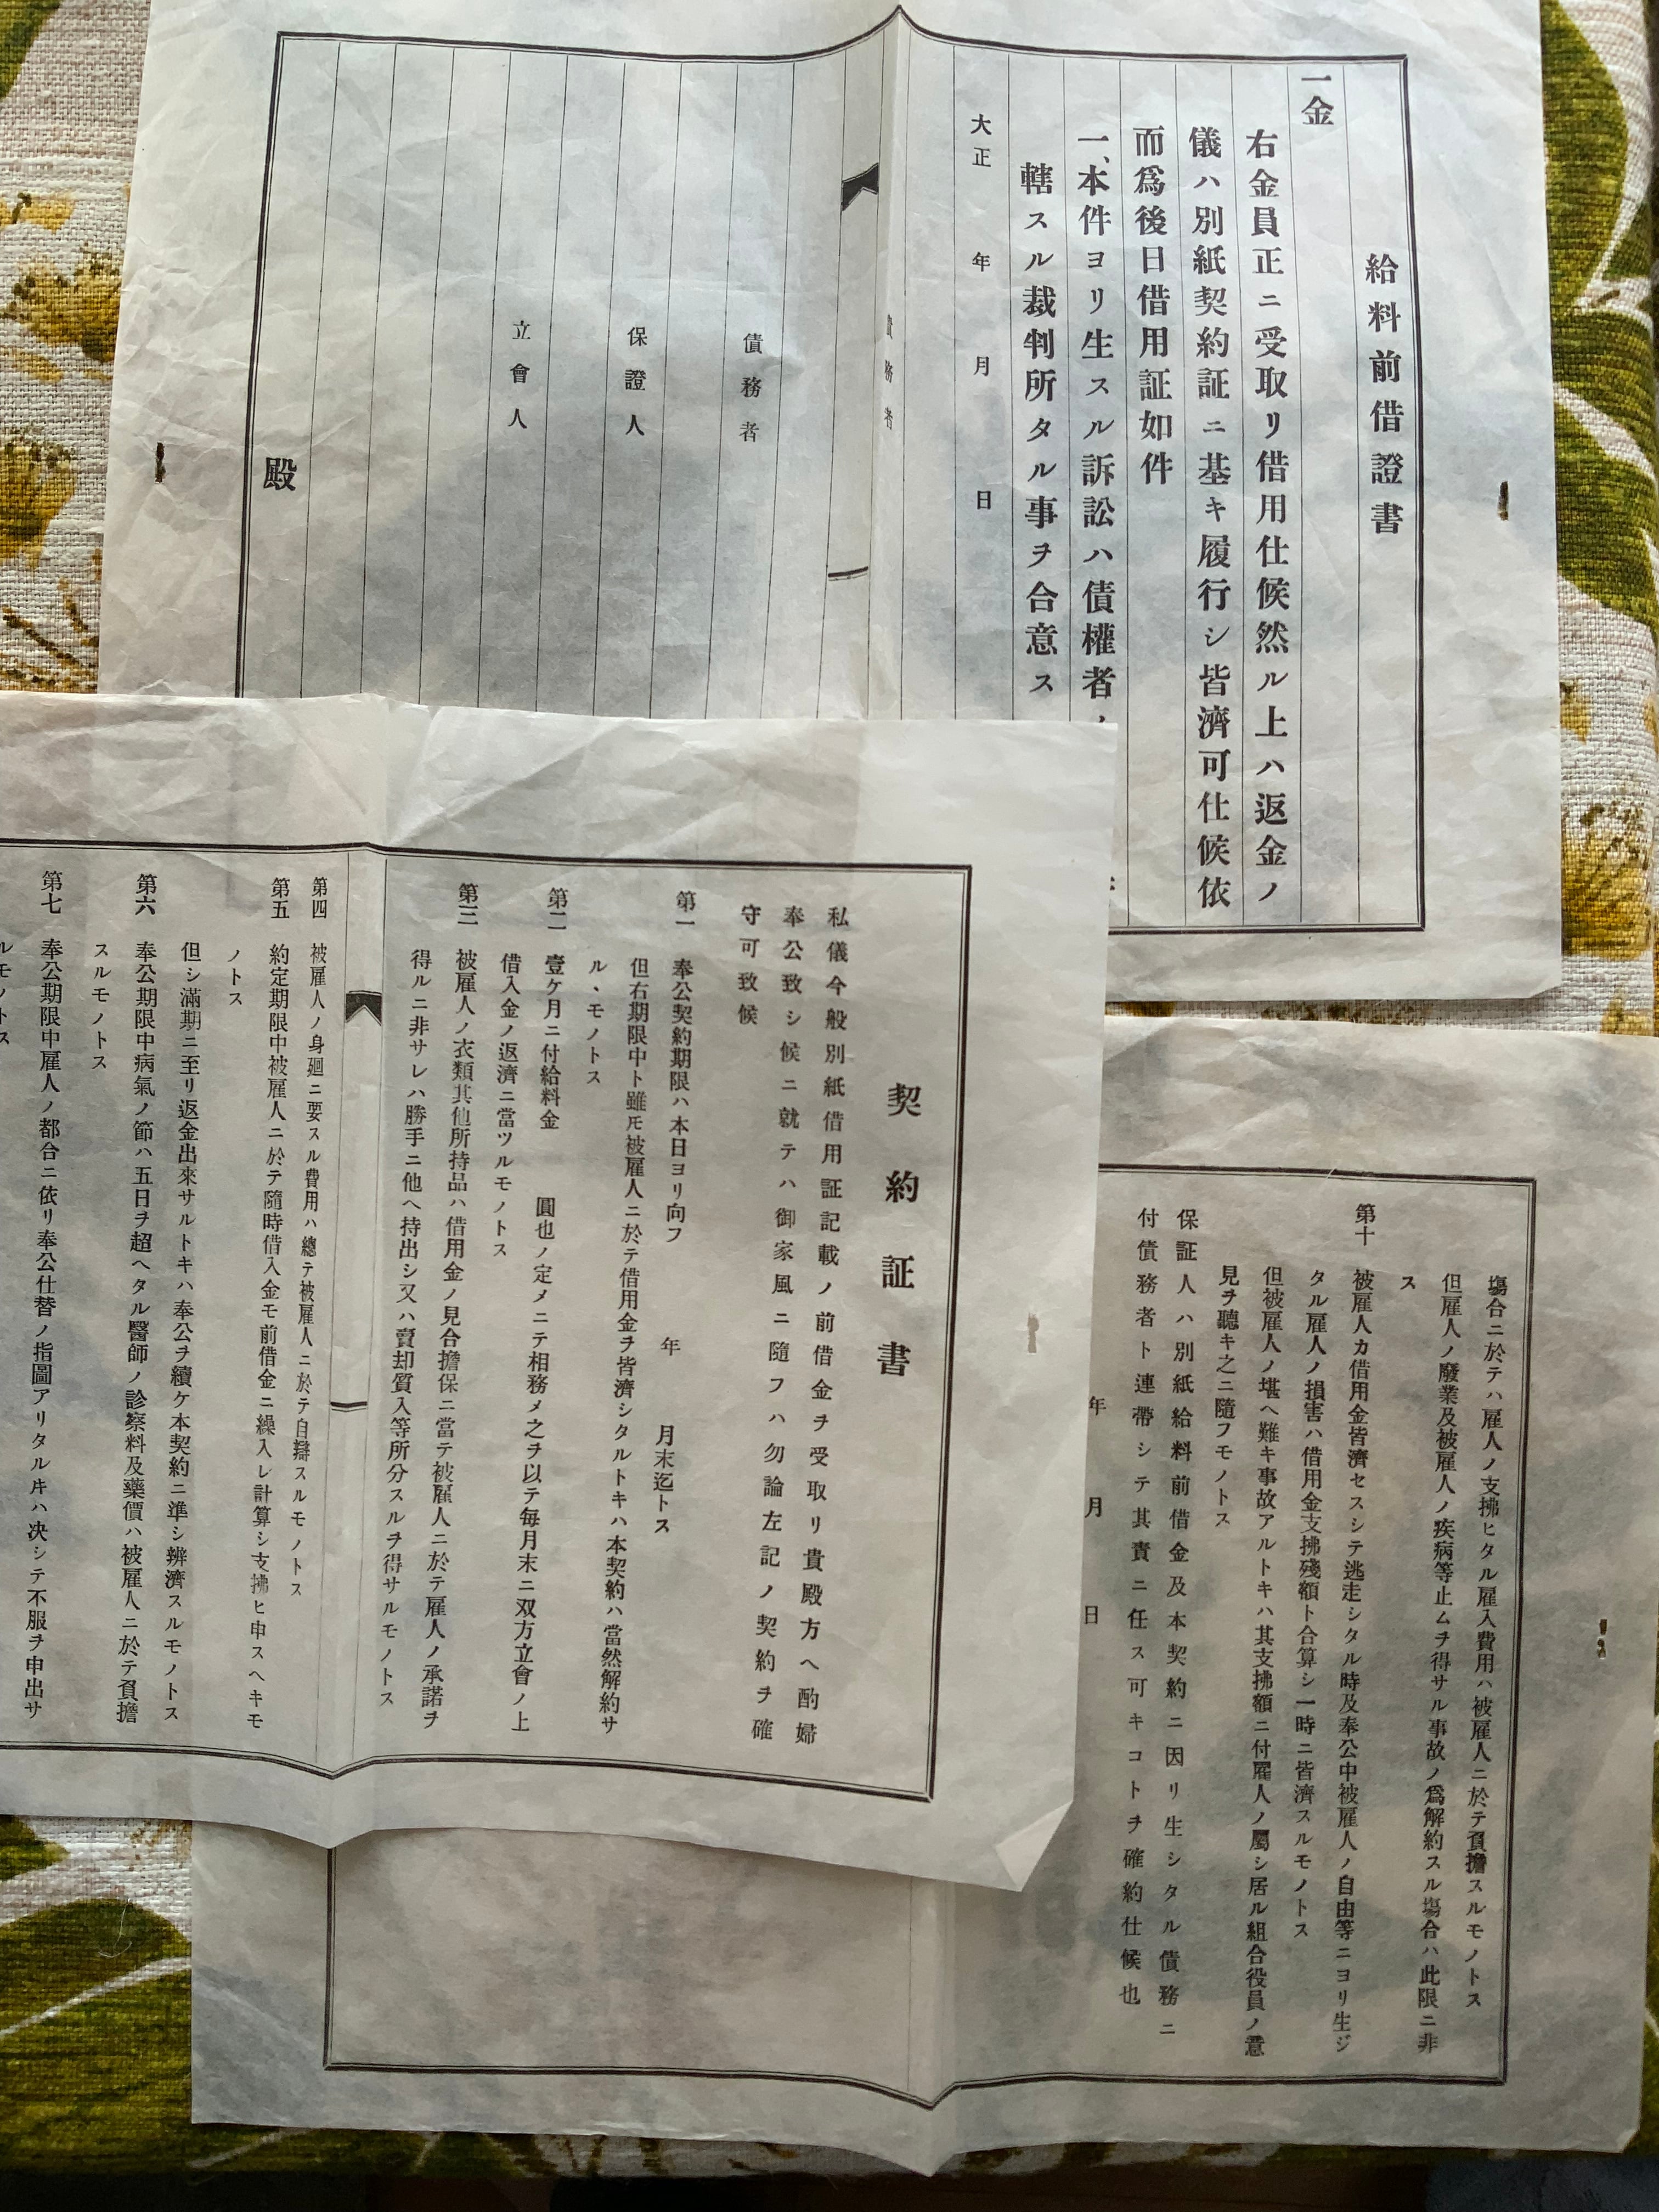 給料前借證書
一金
右金員正ニ受取リ借用仕候然ル上ハ返金ノ
儀ハ別紙契約証ニ基キ履行シ皆濟可仕候依
而爲後日借用証如件
一、本件ヨリ生スル訴訟ハ債權者ノ
轄スル裁判所タル事ヲ合意ス
大正　年　月　日
債務者
債務者
保證人
立會人
殿
契約証書
私儀今般別紙借用証記載ノ前借金ヲ受取リ貴殿方ヘ酌婦
奉公致シ候ニ就テハ御家風ニ隨フハ勿論左記ノ契約ヲ確
守可致候
第一　奉公契約期限ハ本日ヨリ向フ　年　月末迄トス
但右期限中ト雖モ被雇人ニ於テ借用金ヲ皆濟シタルトキハ本契約ハ當然解約サ
ルヽモノトス
第二　壹ケ月ニ付給料金　圓也ノ定メニテ相務メ之ヲ以テ毎月末ニ双方立會ノ上
借入金ノ返濟ニ當ツルモノトス
第三　被雇人ノ衣類其他所持品ハ借用金ノ見合擔保ニ當テ被雇人ニ於テ雇人ノ承諾ヲ
得ルニ非サレハ勝手ニ他ヘ持出シ又ハ賣却質入等所分スルヲ得サルモノトス
第四　被雇人ノ身廻ニ要スル費用ハ總テ被雇人ニ於テ自辯スルモノトス
第五　約定期限中被雇人ニ於テ隨時借入金モ前借金ニ繰入レ計算シ支拂ヒ申スヘキモ
ノトス
但シ滿期ニ至リ返金出來サルトキハ奉公ヲ續ケ本契約ニ準シ辨濟スルモノトス
第六　奉公期限中病氣ノ節ハ五日ヲ超ヘタル醫師ノ診察料及藥價ハ被雇人ニ於テ負擔
スルモノトス
第七　奉公期限中雇人ノ都合ニ依リ奉公仕替ノ指圖アリタル𪜈ハ决シテ不服ヲ申出サ
ルモノトス
塲合ニ於テハ雇人ノ支拂ヒタル雇入費用ハ被雇人ニ於テ負擔スルモノトス
但雇人ノ廢業及被雇人ノ疾病等止ムヲ得サル事故ノ爲解約スル塲合ハ此限ニ非
ス
第十　被雇人カ借用金皆濟セスシテ逃走シタル時及奉公中被雇人ノ自由等ニヨリ生ジ
タル雇人ノ損害ハ借用金支拂殘額ト合算シ一時ニ皆濟スルモノトス
但被雇人ノ堪ヘ難キ事故アルトキハ其支拂額ニ付雇人ノ屬シ居ル組合役員ノ意
見ヲ聽キ之ニ隨フモノトス
保証人ハ別紙給料前借金及本契約ニ因リ生シタル債務ニ
付債務者ト連帶シテ其責ニ任ス可キコトヲ確約仕候也
年　月　日